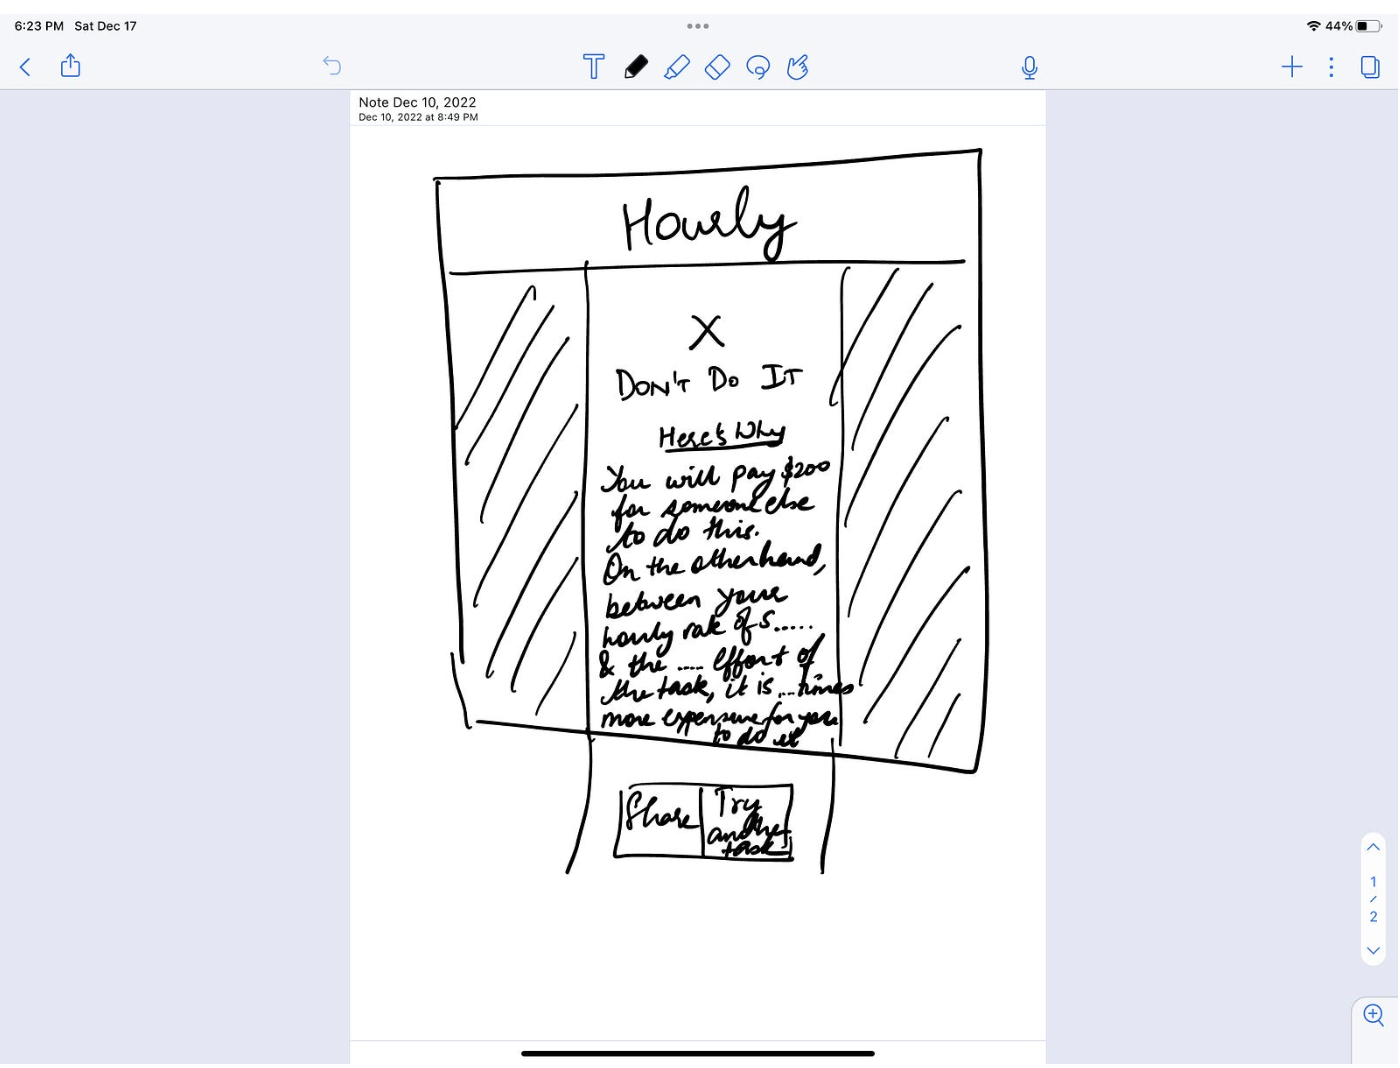 6:23 PM Sat Dec 17
44%
Note Dec 10, 2022
Dec 10, 2022 at 8:49 PM
Hourly
X
DON'T DO IT
Here's Why
You will pay $200
for someone else
to do this.
On the otherhand,
between your
hourly rate of $.....
& the .... effort of
the task, it is ... times
more expensive for you
to do it
Share
Try
another
task
1
/
2